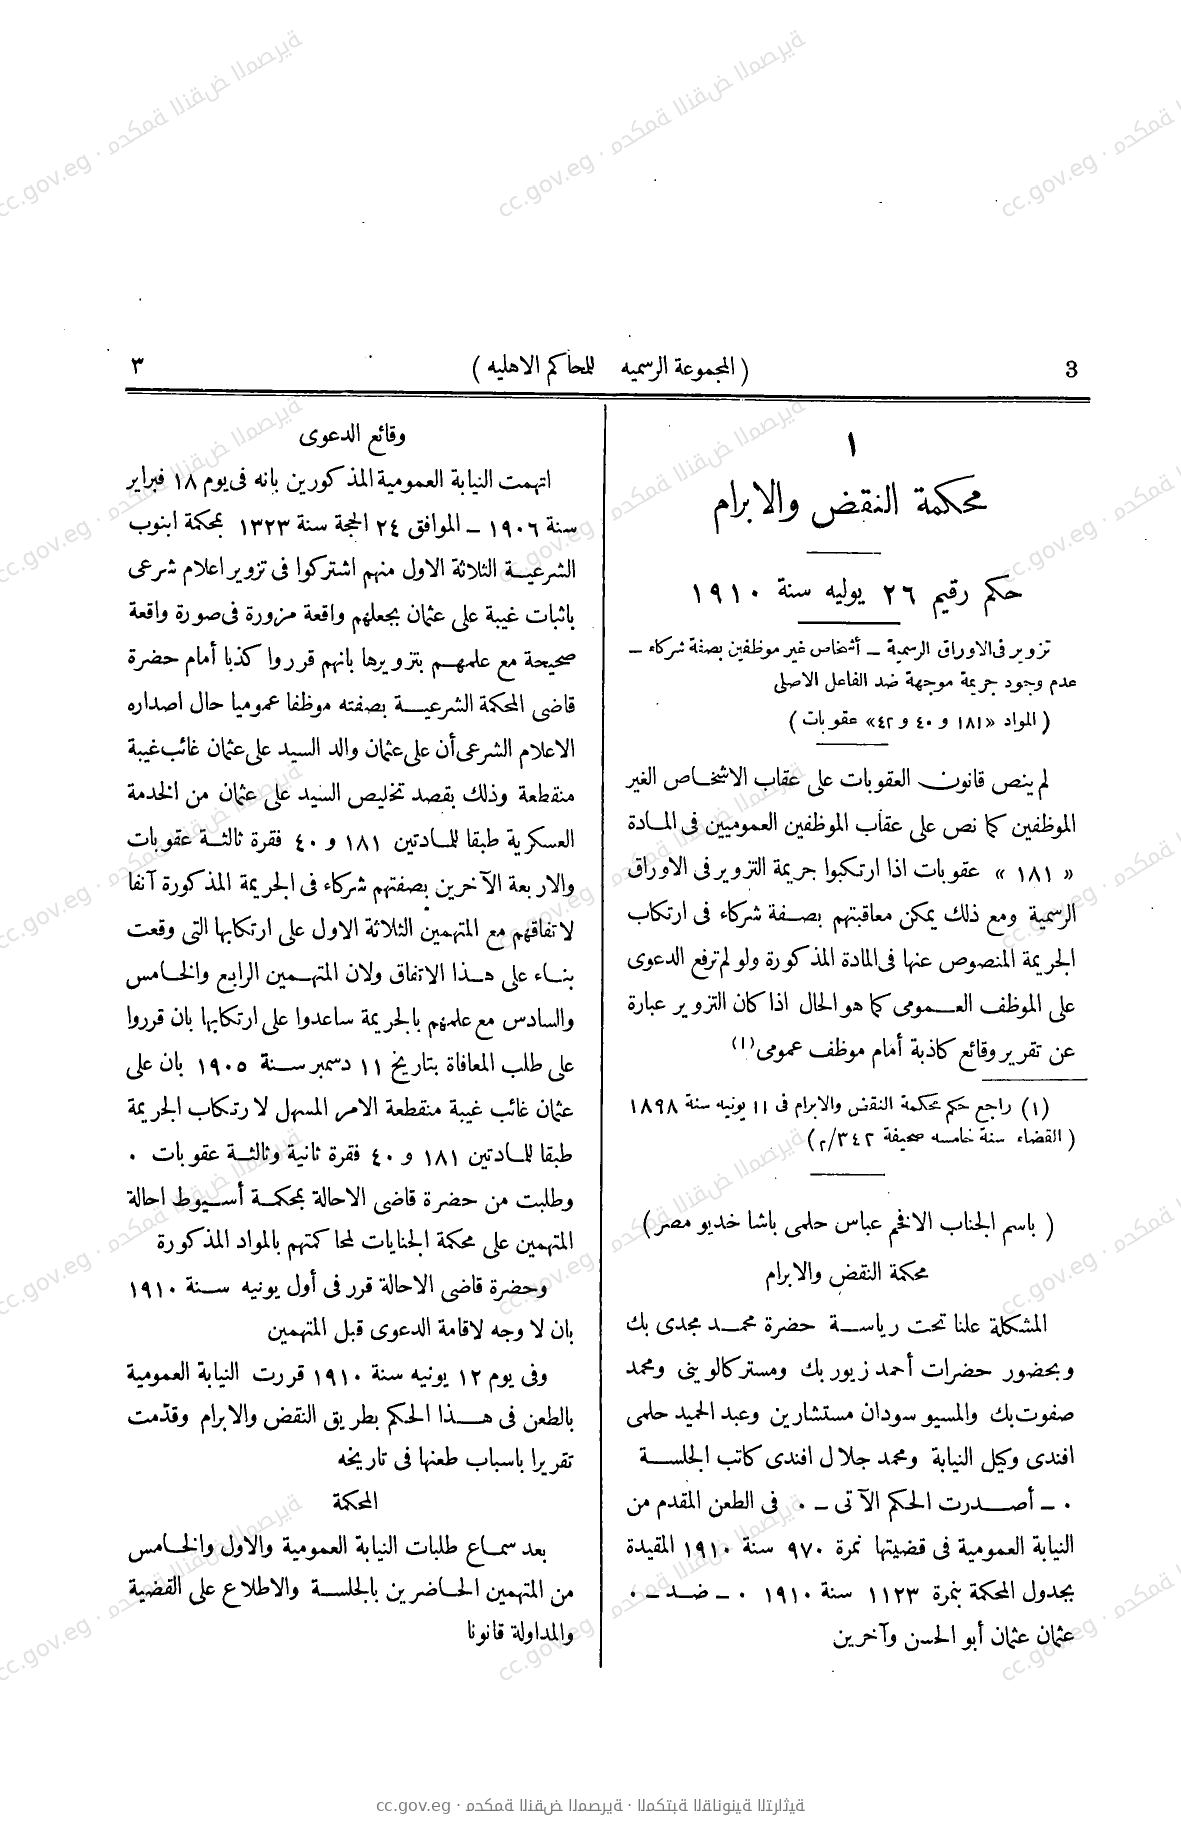 3 ( المجموعة الرسميه للمحاكم الاهليه ) ٣
١
محكمة النقض والابرام
حكم رقيم ٢٦ يوليه سنة ١٩١٠
تزوير فى الاوراق الرسمية – أشخاص غير موظفين بصفة شركاء –
عدم وجود جريمة موجهة ضد الفاعل الاصلى
( المواد «١٨١ و ٤٠ و ٤٢» عقوبات )
لم ينص قانون العقوبات على عقاب الاشخاص الغير
الموظفين كما نص على عقاب الموظفين العموميين فى المادة
« ١٨١ » عقوبات اذا ارتكبوا جريمة التزوير فى الاوراق
الرسمية ومع ذلك يمكن معاقبتهم بصفة شركاء فى ارتكاب
الجريمة المنصوص عنها فى المادة المذكورة ولو لم ترفع الدعوى
على الموظف العمومى كما هو الحال اذا كان التزوير عبارة
عن تقرير وقائع كاذبة أمام موظف عمومى (١)
(١) راجع حكم محكمة النقض والابرام فى ١١ يونيه سنة ١٨٩٨
( القضاء سنة خامسه صحيفة ٢/٣٤٢ )
( باسم الجناب الافخم عباس حلمى باشا خديو مصر )
محكمة النقض والابرام
المشكلة علنا تحت رياسة حضرة محمد مجدى بك
وبحضور حضرات أحمد زيور بك ومستر كالوينى ومحمد
صفوت بك والمسيو سودان مستشارين وعبد الحميد حلمى
افندى وكيل النيابة ومحمد جلال افندى كاتب الجلسة
٠ – أصدرت الحكم الآتى – ٠ فى الطعن المقدم من
النيابة العمومية فى قضيتها نمرة ٩٧٠ سنة ١٩١٠ المقيدة
بجدول المحكمة بنمرة ١١٢٣ سنة ١٩١٠ ٠ – ضد – ٠
عثمان عثمان أبو الحسن وآخرين
وقائع الدعوى
اتهمت النيابة العمومية المذكورين بانه فى يوم ١٨ فبراير
سنة ١٩٠٦ – الموافق ٢٤ الحجة سنة ١٣٢٣ بمحكمة ابنوب
الشرعية الثلاثة الاول منهم اشتركوا فى تزوير اعلام شرعى
باثبات غيبة على عثمان بجعلهم واقعة مزورة فى صورة واقعة
صحيحة مع علمهم بتزويرها بانهم قرروا كذبا أمام حضرة
قاضى المحكمة الشرعية بصفته موظفا عموميا حال اصداره
الاعلام الشرعى أن على عثمان والد السيد على عثمان غائب غيبة
منقطعة وذلك بقصد تخليص السيد على عثمان من الخدمة
العسكرية طبقا للمادتين ١٨١ و ٤٠ فقرة ثالثة عقوبات
والاربعة الآخرين بصفتهم شركاء فى الجريمة المذكورة آنفا
لاتفاقهم مع المتهمين الثلاثة الاول على ارتكابها التى وقعت
بناء على هذا الاتفاق ولان المتهمين الرابع والخامس
والسادس مع علمهم بالجريمة ساعدوا على ارتكابها بان قرروا
على طلب المعافاة بتاريخ ١١ دسمبر سنة ١٩٠٥ بان على
عثمان غائب غيبة منقطعة الامر المسهل لارتكاب الجريمة
طبقا للمادتين ١٨١ و ٤٠ فقرة ثانية وثالثة عقوبات ٠
وطلبت من حضرة قاضى الاحالة بمحكمة أسيوط احالة
المتهمين على محكمة الجنايات لمحاكمتهم بالمواد المذكورة
وحضرة قاضى الاحالة قرر فى أول يونيه سنة ١٩١٠
بان لا وجه لاقامة الدعوى قبل المتهمين
وفى يوم ١٢ يونيه سنة ١٩١٠ قررت النيابة العمومية
بالطعن فى هذا الحكم بطريق النقض والابرام وقدّمت
تقريرا باسباب طعنها فى تاريخه
المحكمة
بعد سماع طلبات النيابة العمومية والاول والخامس
من المتهمين الحاضرين بالجلسة والاطلاع على القضية
والمداولة قانونا
cc.gov.eg · محكمة النقض المصرية · المكتبة القانونية التراثية